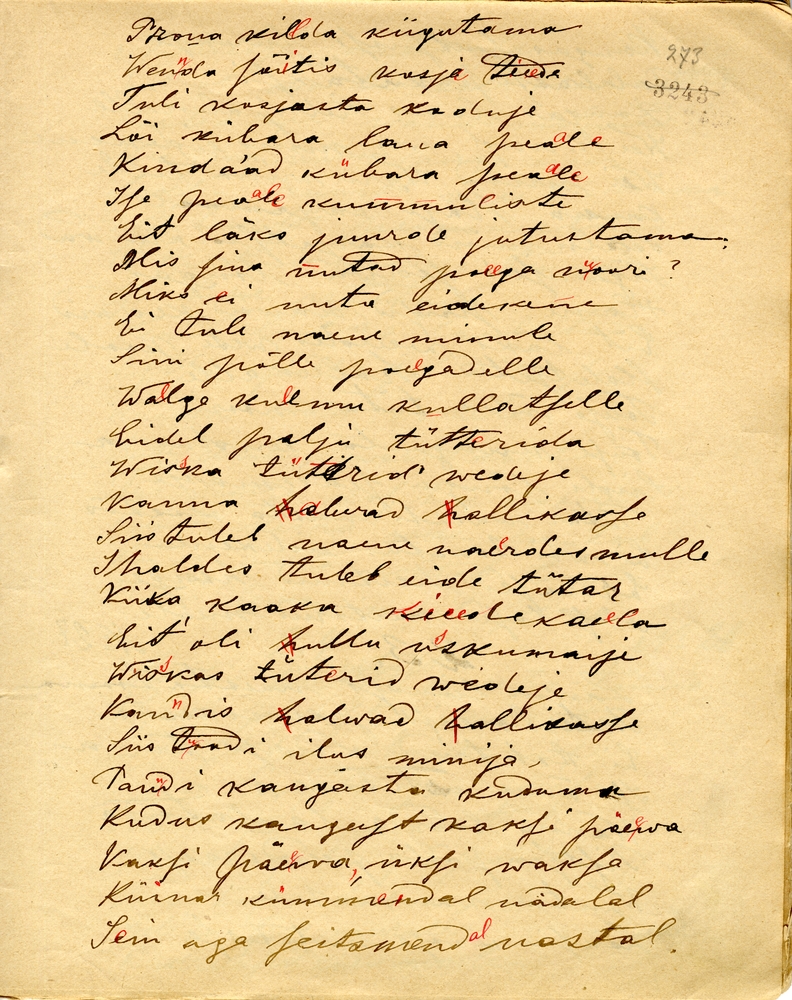 273
3243
Prona kilda kiigutama
Wenda sõitis kosja teede
Tuli kosjasta koduje
Lõi kübara laua peale
Kindaad kübara peale
Ise peale kummuliste
Eit läks juurde jutustama.
Mis sina nutad poega noori?
Miks ei nuta eidekene
Ei tule naene minule
Sini põlle poegadelle
Walge kulmu kullatselle
Eidel palju tütterida
Wiska tüterid wedeje
Kanna halwad hallikasse
Siis tuleb naene naerdes mulle
Ihaldes tuleb eide tütar
Kiika kaaka keede kaela
Eit oli hullu uskumaije
Wiskas tüterid wedeje
Kandis halwad hallikasse
Siis toodi ilus minija,
Pandi kangasta kuduma
Kudus kangast kaksi päewa
Kaksi päewa, üksi waksa
Küinar kümmendal nädalal
Sein aga seitsmendal aastal.